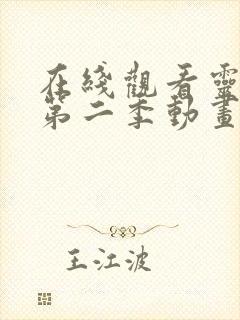 在綫觀看靈
第二季動畫
王江波